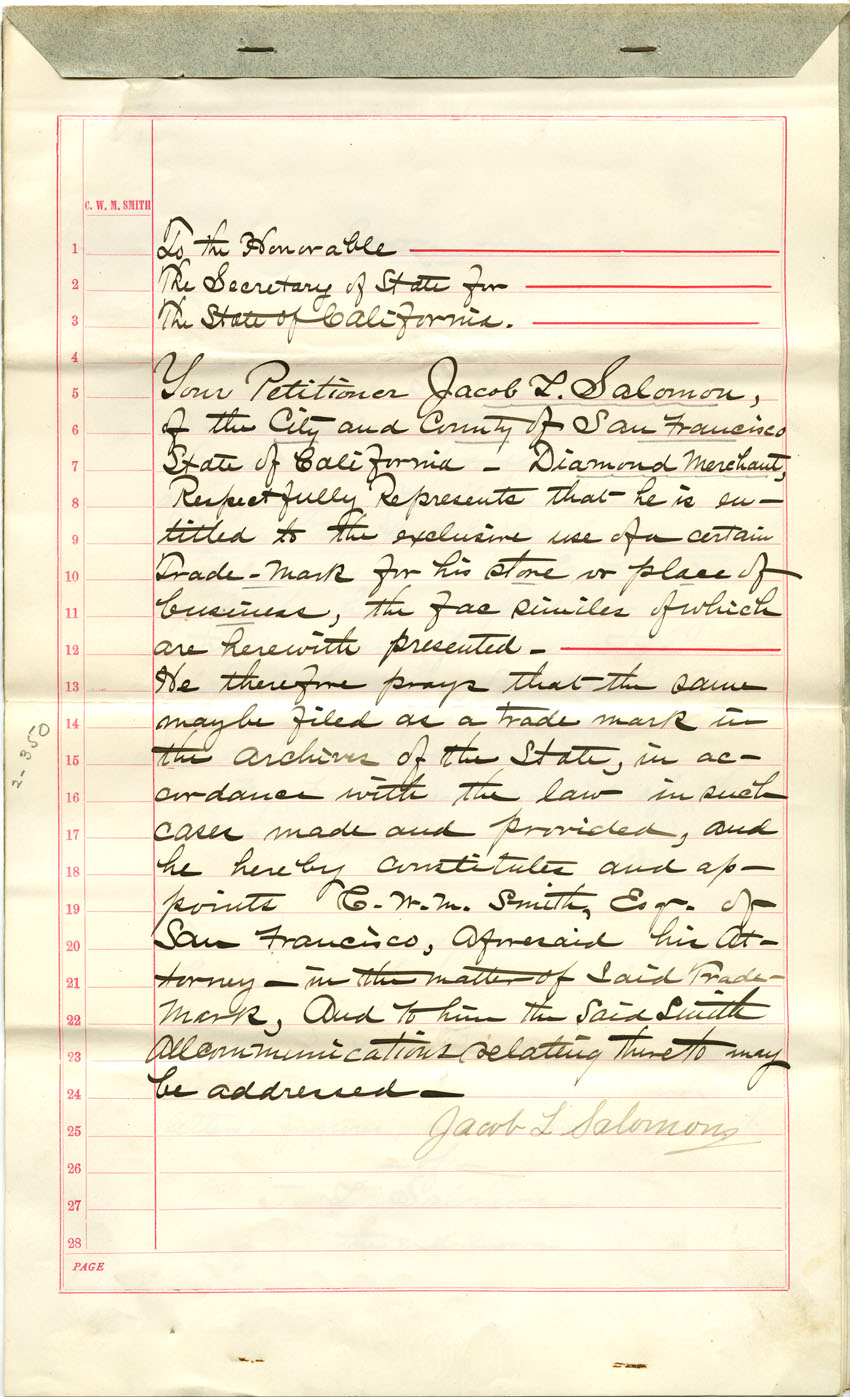 C. W. M. SMITH
1 To the Honorable
2 The Secretary of State for
3 The State of California.
4
5 Your Petitioner Jacob L. Salomon,
6 of the City and County of San Francisco
7 State of California - Diamond Merchant,
8 Respectfully Represents that he is en-
9 titled to the exclusive use of a certain
10 Trade-Mark for his store or place of
11 business, the fac similes of which
12 are herewith presented -
13 He therefore prays that the same
14 maybe filed as a trade mark in
15 the archives of the State, in ac-
16 cordance with the law in such
17 cases made and provided, and
18 he hereby constitutes and ap-
19 points C. W. M. Smith, Esqr. of
20 San Francisco, Aforesaid his At-
21 torney - in the matter of Said Trade-
22 Mark, And to him the Said Smith
23 All communications relating thereto may
24 be addressed -
25 Jacob L Salomon
26
27
28
PAGE
2-350